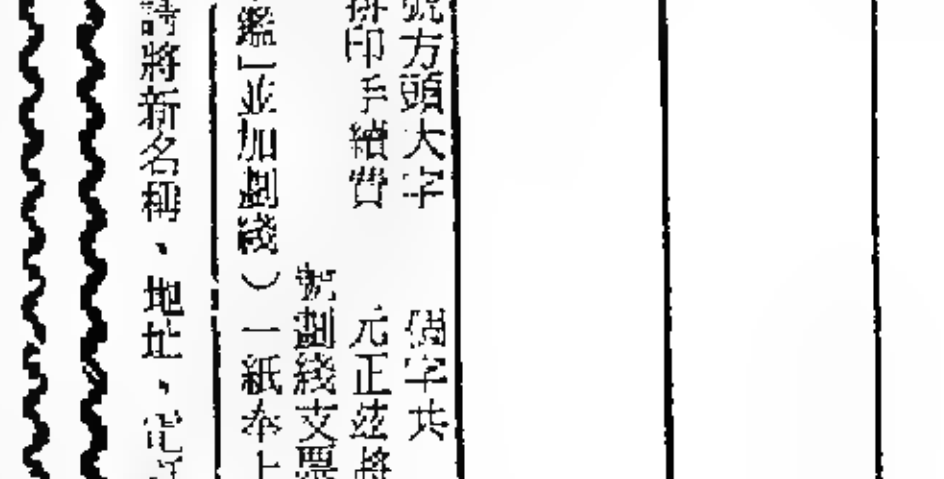 號方頭大字 個字共
排印手續費 元正茲將
號劃綫支票
鑑一並加劃綫）一紙奉上
請將新名稱、地址、電話